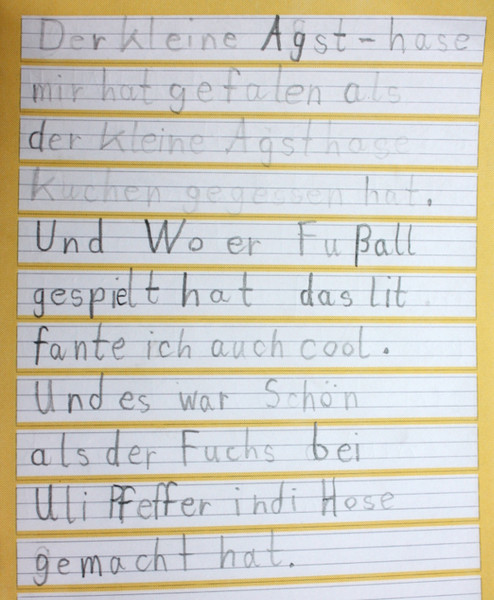 Der kleine Agst-hase
mir hat gefalen als
der kleine Agsthase
Kuchen gegessen hat.
Und Wo er Fußall
gespielt hat das lit
fante ich auch cool.
Und es war Schön
als der Fuchs bei
Uli Pfeffer indi Hose
gemacht hat.